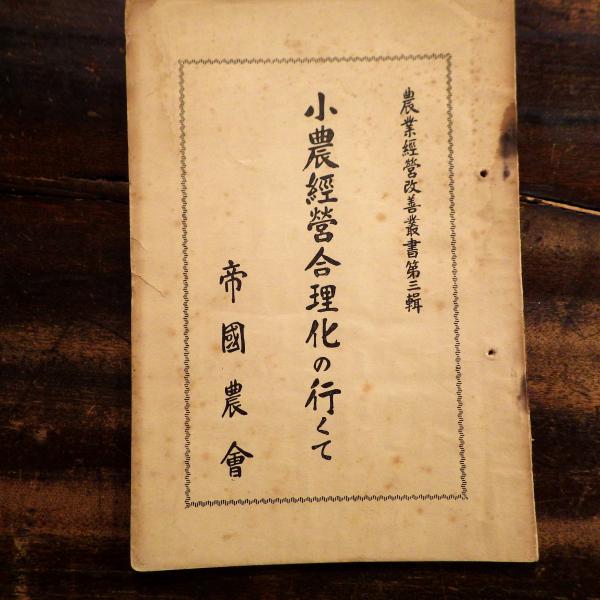 農業經營改善叢書第三輯
小農經營合理化の行くて
帝國農會